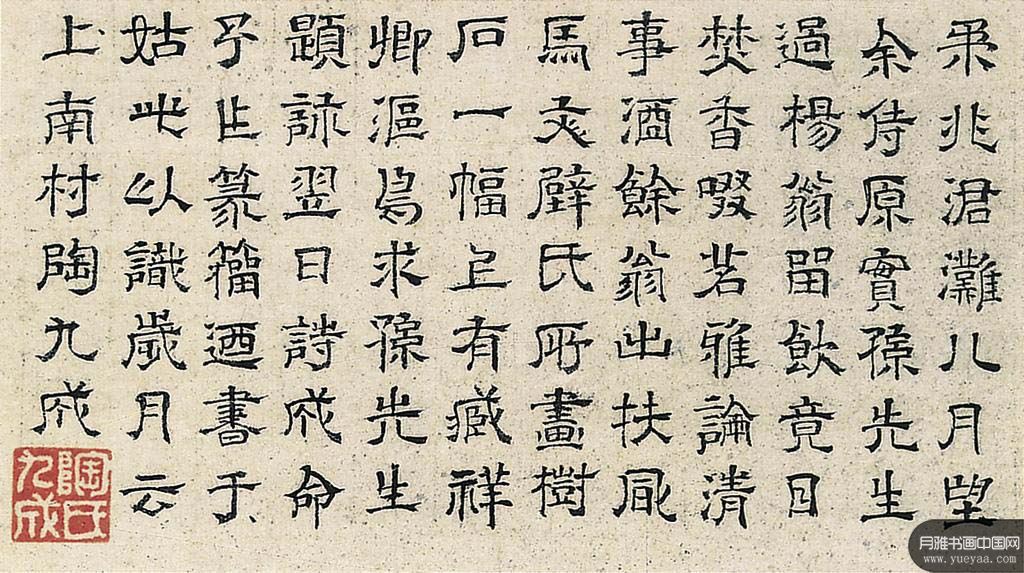 柔兆涒灘八月望
余侍原實孫先生
過楊翁留飲竟日
焚香啜茗雅論清
事酒餘翁出扶風
馬文璧氏所畫樹
石一幅上有臧祥
卿漚鳥求孫先生
題詠翌日詩成命
予作篆籀迺書于
姑此以識歲月云
上南村陶九成
陶氏九成
月雅书画中国网
www.yueyaa.com